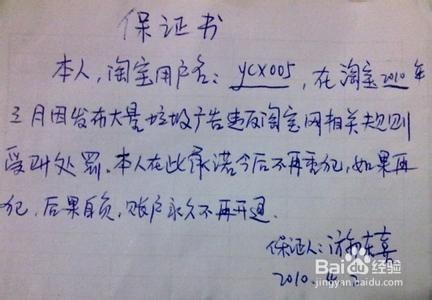 保证书
本人,淘宝用户名:ycx005,在淘宝2010年
三月因发布大量垃圾广告违反淘宝网相关规则
受到处罚。本人在此承诺今后不再重犯,如果再
犯,后果自负,账户永久不再开通.
保证人:
2010.4.
Baidu经验
jingyan.baidu.com